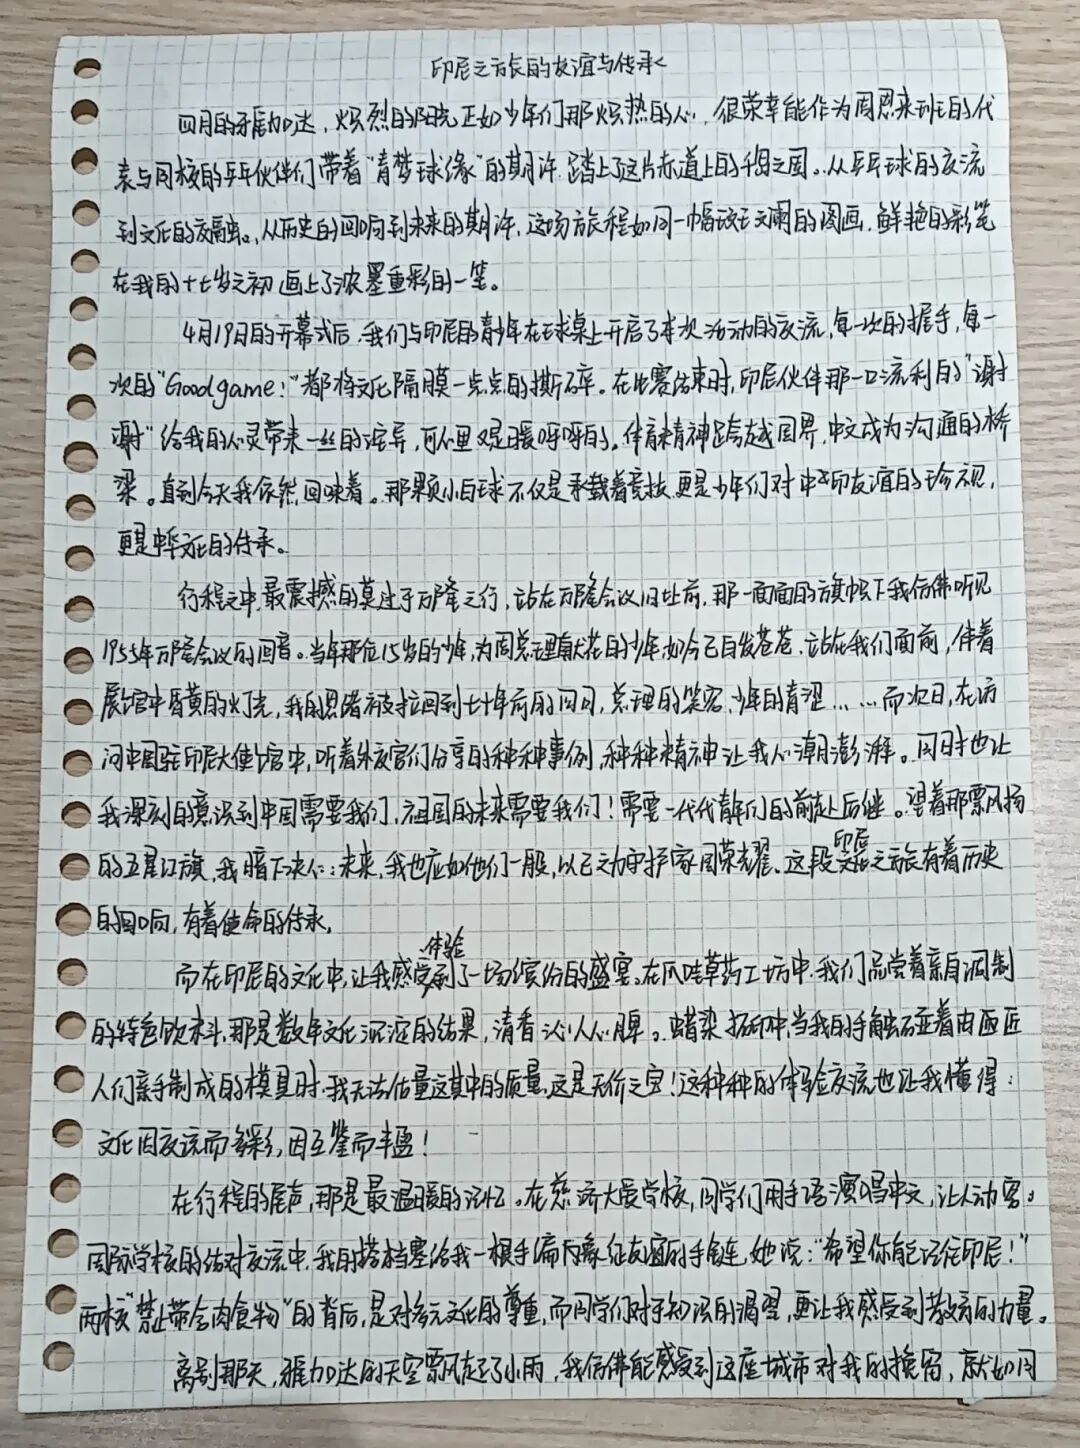 印尼之旅的友谊与传承
四月的雅加达，炽烈的阳光正如少年们那炽热的心，很荣幸能作为周恩来班的代
表与同校的乒乓伙伴们带着“青梦球缘”的期许踏上了这片赤道上的千岛之国。从乒乓球的交流
到文化的交融，从历史的回响到未来的期许，这场旅程如同一幅斑斓的图画，鲜艳的彩笔
在我的十七岁之初画上了浓墨重彩的一笔。
4月19日的开幕式后，我们与印尼的青少年在球桌上开启了本次活动的交流，每一次的握手，每一
次的“Good game！”都将文化隔膜一点点的撕碎。在比赛结束时，印尼伙伴那一口流利的“谢
谢”给我的心灵带来一丝的诧异，可心里又是暖呼呼的。体育精神跨越国界，中文成为沟通的桥
梁。直到今天我依然回味着。那颗小白球不仅是承载着竞技，更是少年们对中印友谊的珍视，
更是中华文化的传承。
行程之中，最震撼的莫过于万隆之行，站在万隆会议旧址前，那一面面的旗帜下我仿佛听见
1955年万隆会议的回音。当年那位15岁的少年，为周总理献花的少年如今已白发苍苍，站在我们面前，伴着
展馆中昏黄的灯光，我的思绪被拉回到七十年前的同日，总理的笑容，少年的青涩……而次日，在访
问中国驻印尼大使馆中，听着外交官们分享的种种事例，种种精神让我心潮澎湃。同时也让
我深刻的意识到中国需要我们，祖国的未来需要我们！需要一代代青年们的前赴后继。望着那飘扬
的五星红旗，我暗下决心：未来，我也应如他们一般，以己之力守护家国荣耀。这段印尼之旅有着历史
的回响，有着使命的传承，
而在印尼的文化中，让我感受体验了一场缤纷的盛宴。在爪哇草药工坊中，我们品尝着亲自调制
的特色饮料，那是数年文化沉淀的结果，清香沁人心脾。蜡染坊中，当我的手触碰着由匠
人们亲手制成的模具时，我无法估量这其中的质量，这是无价之宝！这种种的体验交流也让我懂得：
文化因交流而多彩，因互鉴而丰盈！
在行程的尾声，那是最温暖的记忆。在慈济大爱学校，同学们用手语演唱中文，让人动容。
国际学校的结对交流中，我的搭档塞给我一根手编的象征友谊的手链，她说：“希望你能记住印尼！”
两校“禁止带含肉食物”的背后，是对多元文化的尊重，而同学们对于知识的渴望，更让我感受到教育的力量。
离别那天，雅加达的天空飘起了小雨，我仿佛能感受到这座城市对我的挽留，就如同